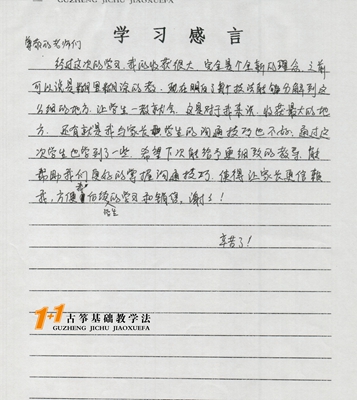 GUZHENG JICHU JIAOXUEFA
学习感言
尊敬的老师们
经过这次的学习,我的收获很大,完全是个全新的理念,之前
可以说是糊里糊涂的教,现在明白了每个技法能够分解到这
么细的地方,让学生一教就会,这是对于我来说,收获最大的地
方。还有就是我与家长和学生的沟通技巧也不好,通过这
次学生也学到了一些,希望下次能给予更细致的教导,能
帮助我们更好的掌握沟通技巧,使得让家长更信赖
我,方便我们后续的学习和销售,谢了!
招生
辛苦了!
1+1古筝基础教学法
GUZHENG JICHU JIAOXUEFA